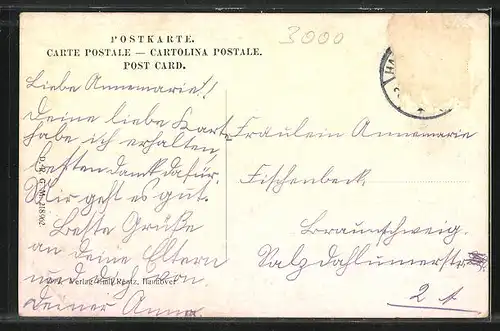 POSTKARTE.
CARTE POSTALE — CARTOLINA POSTALE.
POST CARD.
3000
HA
Liebe Annemarie!!
Deine liebe Karte
habe ich erhalten,
besten dank dafür.
Mir geht es gut.
Beste Grüße
an deine Eltern
und dich von
deiner Anna.
Fräulein Annemarie
Fischenbeck
Braunschweig.
Salzdahlumerstr.
2 I
D. R. G. M. 218902.
Verlag Emil Rentz, Hannover